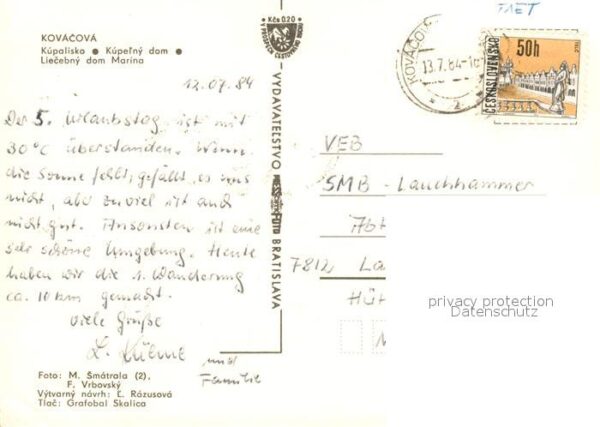 KOVÁČOVÁ
Kúpalisko ● Kúpeľný dom ●
Liečebný dom Marina
12.07.84
Der 5. Urlaubstag ist mit
30°C überstanden. Wenn
die Sonne fehlt, gefällt es uns
nicht, aber zuviel ist auch
nicht gut. Ansonsten ist eine
sehr schöne Umgebung. Heute
haben wir die 1. Wanderung
ca. 10 km gemacht.
Viele Grüße
und
Familie
Foto: M. Šmátrala (2),
F. Vrbovský
Výtvarný návrh: Ľ. Rázusová
Tlač: Grafobal Skalica
Kčs 0.20
VYDAVATEĽSTVO
BRATISLAVA
13.7.84
50h
ČESKOSLOVENSKO
VEB
SMB - Lauchhammer
Abt
7812 La
Hüt
privacy protection
Datenschutz